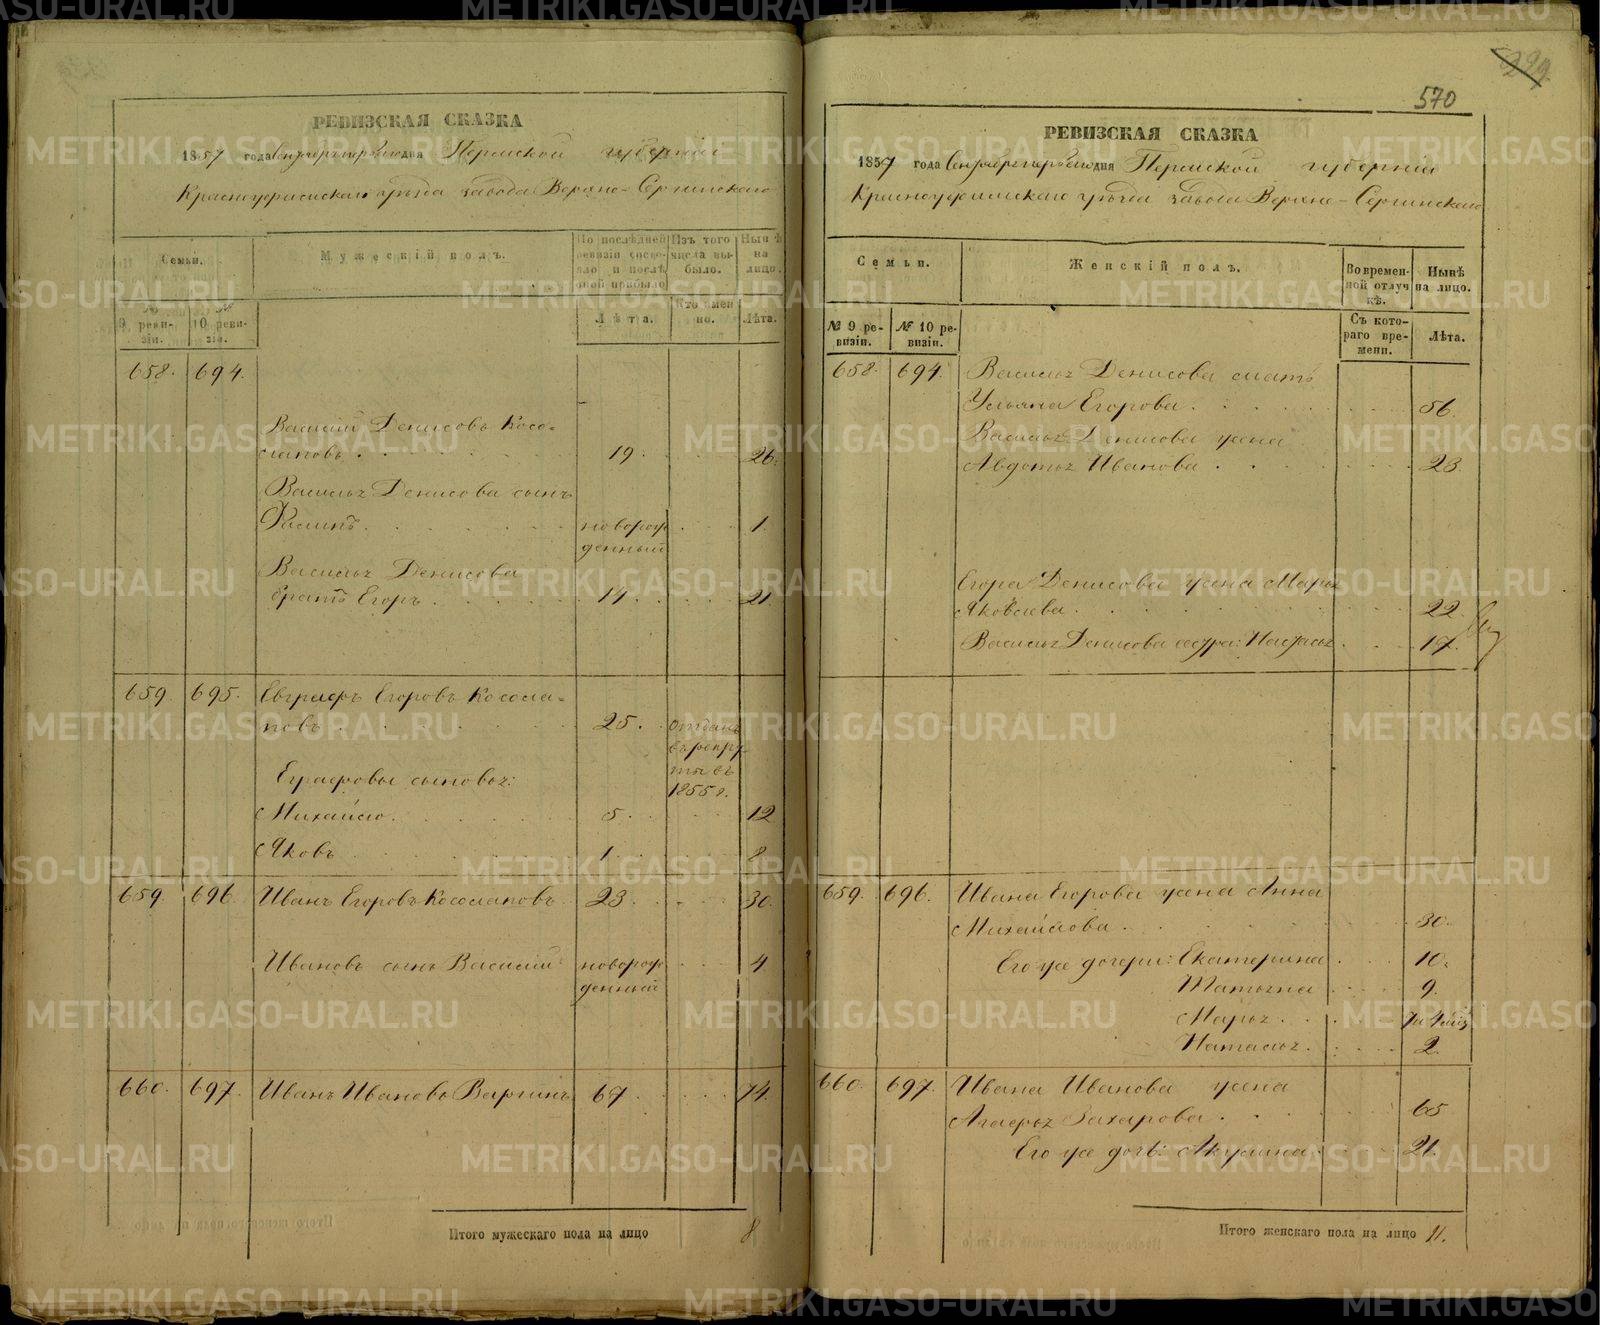 РЕВИЗСКАЯ СКАЗКА
1857 года Сентября первого дня Пермской губернии
Красноуфимскаго уѣзда завода Верхне-Сергинскаго
Семьи.
Мужескій полъ.
По послѣдней ревизіи состояло и послѣ оной прибыло
Изъ того числа выбыло.
Нынѣ на лицо.
№ 9 ревизіи.
№ 10 ревизіи.
Лѣта.
Кто именно.
Лѣта.
658. 694.
Василій Денисовъ Косо-
лаповъ. 19. 26.
Василья Денисова сынъ
Филипъ. новорож 1.
денный
Василья Денисова
братъ Егоръ. 14. 21
659. 695. Евграфъ Егоровъ Косола-
повъ. 25. отданъ
въ рекру
ты въ
Еграфовы сыновья: 1855 г.
Михайло. 5. 12
Яковъ 1. 8
659. 696. Иванъ Егоровъ Косолаповъ. 23. 30.
Ивановъ сынъ Василій новорож 4
денный
660. 697. Иванъ Ивановъ Варгинъ 67. 74.
Итого мужескаго пола на лицо 8
299
570
РЕВИЗСКАЯ СКАЗКА
1857 года Сентября первого дня Пермской губерніи
Красноуфимскаго уѣзда завода Верхне-Сергинскаго
Семьи.
Женскій полъ.
Во временной отлучкѣ.
Нынѣ на лицо.
№ 9 ревизіи.
№ 10 ревизіи.
Съ котораго времени.
Лѣта.
658. 694. Василья Денисова мать
Ульяна Егорова. 56.
Василья Денисова жена
Авдотья Иванова. 23.
Егора Денисова жена Марья
Яковлева. 22.
Василья Денисова сестра: Настасья 17.
659. 696. Ивана Егорова жена Анна
Михайлова. 30.
Его же дочери: Екатерина 10.
Татьяна 9.
Марья. 7 и 4 мѣс
Наталья. 2.
660. 697. Ивана Иванова жена
Агафья Захарова. 65
Его же дочь: Акулина. 21.
Итого женскаго пола на лицо 11.
METRIKI.GASO-URAL.RU